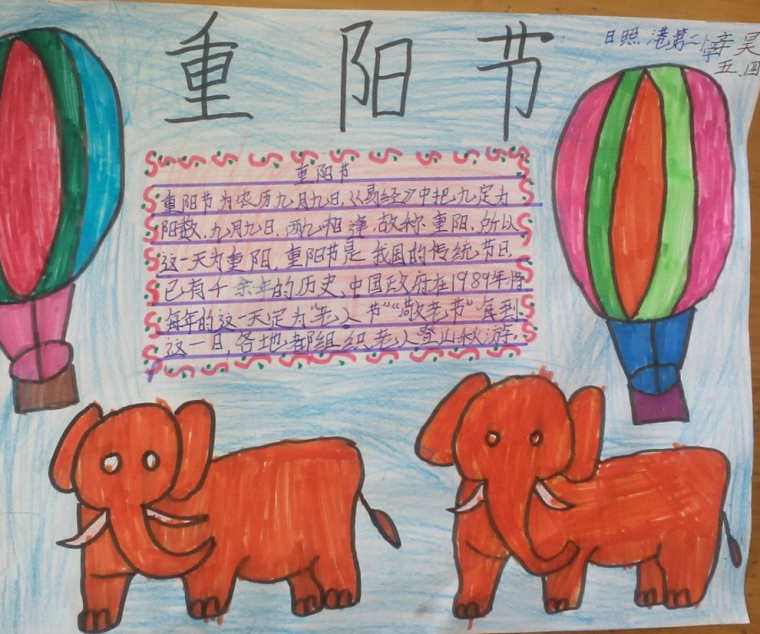 重阳节
日照港第二小学 辛昊
五.四
重阳节
重阳节为农历九月九日,《易经》中把九定为
阳数,九月九日,两九相弹,故称重阳,所以
这一天为重阳,重阳节是我国的传统节日,
已有千余年的历史,中国政府在1989年将
每年的这一天定为"老人节""敬老节"每到
这一日,各地都组织老人登山秋游.